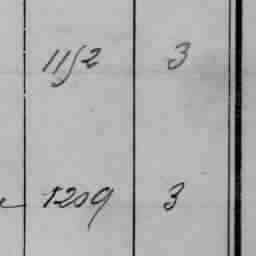 1152 3
1209 3